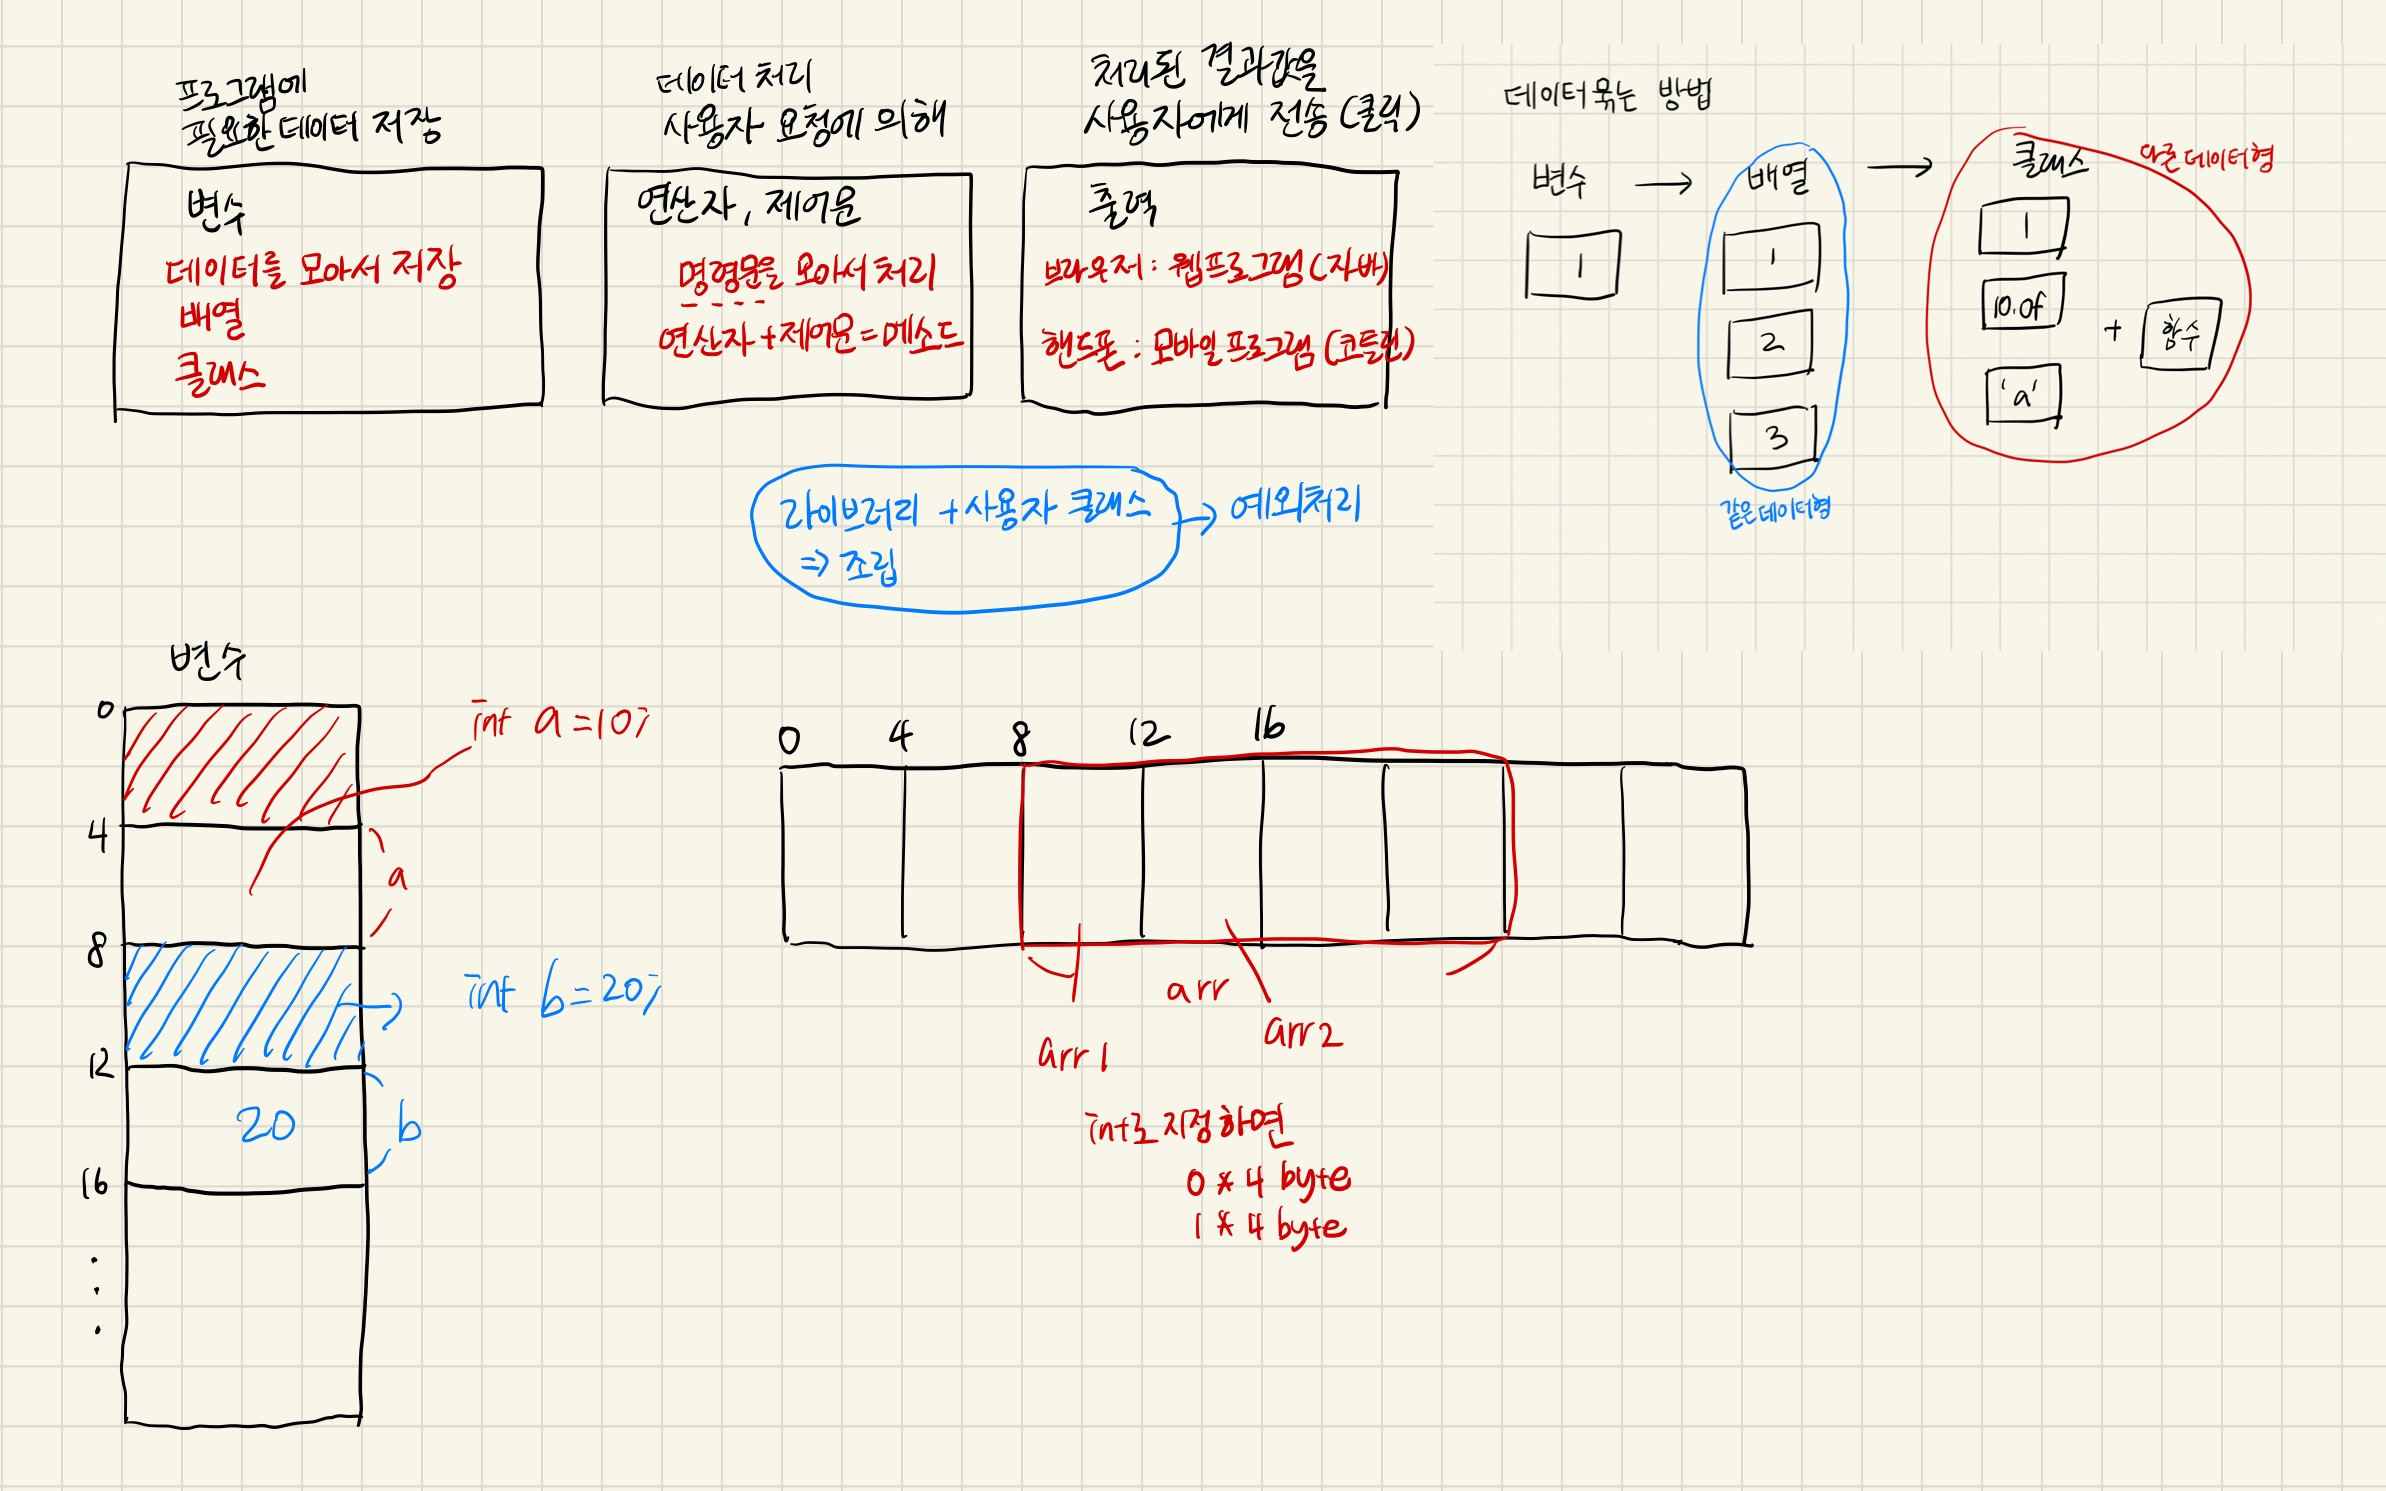 프로그램에
필요한 데이터 저장
변수
데이터를 모아서 저장
배열
클래스
데이터 처리
사용자 요청에 의해
연산자, 제어문
명령문을 모아서 처리
연산자+제어문=메소드
처리된 결과값을
사용자에게 전송 (클릭)
출력
브라우저 : 웹프로그램(자바)
핸드폰 : 모바일 프로그램 (코틀린)
데이터 묶는 방법
변수 → 배열 → 클래스
다른 데이터형
1
1
2
3
같은 데이터형
1
10.0f
'a'
+ 함수
라이브러리 + 사용자 클래스 → 예외처리
⇒ 조립
변수
0
4
8
12
16
int a=10;
a
int b=20;
20
b
0 4 8 12 16
arr
arr1
arr2
int로 지정하면
0 * 4 byte
1 * 4 byte